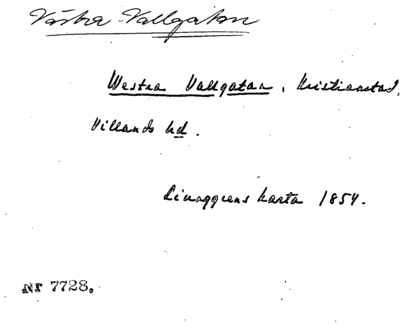 Västra Vallgatan
Westra Vallgatan, Kristianstad,
Villands hd.
Ljunggrens karta 1854.
Nr 7728.